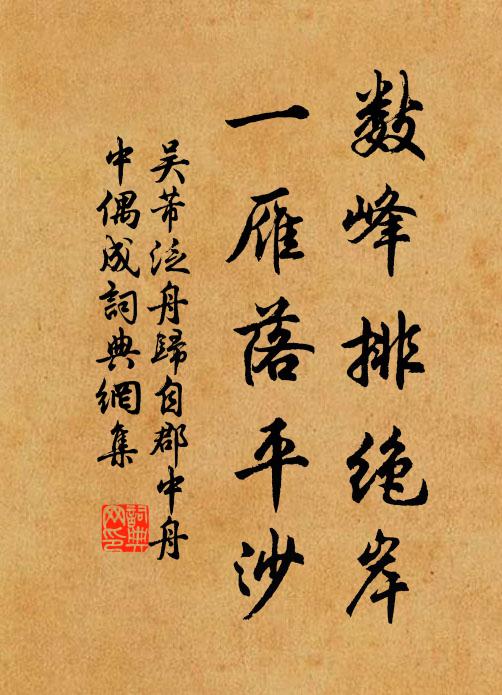 数峰排绝岸
一雁落平沙
吴芾泛舟歸自郡中舟
中偶成詞典網集
詞典
网印